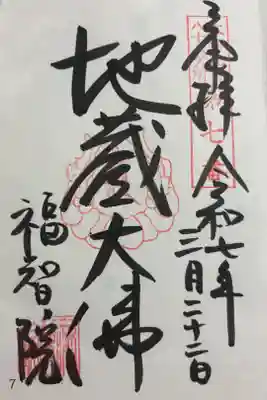 奉拝
令和七年
三月二十二日
地蔵大佛
福智院
7